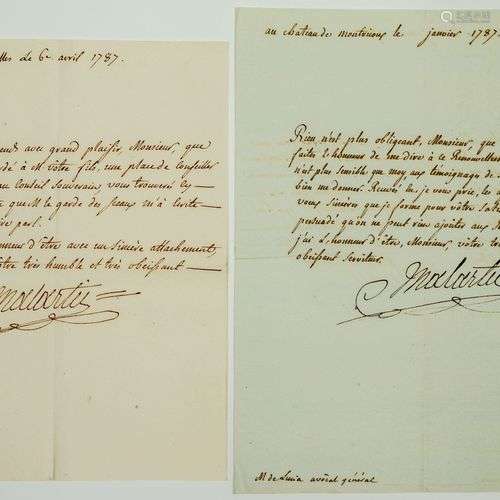 lles le 6e avril 1787.
avec grand plaisir, Monsieur, que
dé à M votre fils, une place de Conseiller
au Conseil Souverain vous trouverés cy
que M le garde des sceaux m'a écrite
part.
d'être avec un sincère attachement
très humble et très obéissant
Malartic
au chateau de montricoux le janvier 1787.
Rien n'est plus obligeant, Monsieur, que
faites l'honneur de me dire à ce Renouvellem
n'est plus sensible que moy au témoignage de
bien me donner. Recevé les je vous prie, les
vous sincères que je forme pour vôtre
persuadé qu'on ne peut rien ajouter aux
j'ai L'honneur d'être, Monsieur votre
obéissant serviteur.
Malartic
M de Lucia avocat général